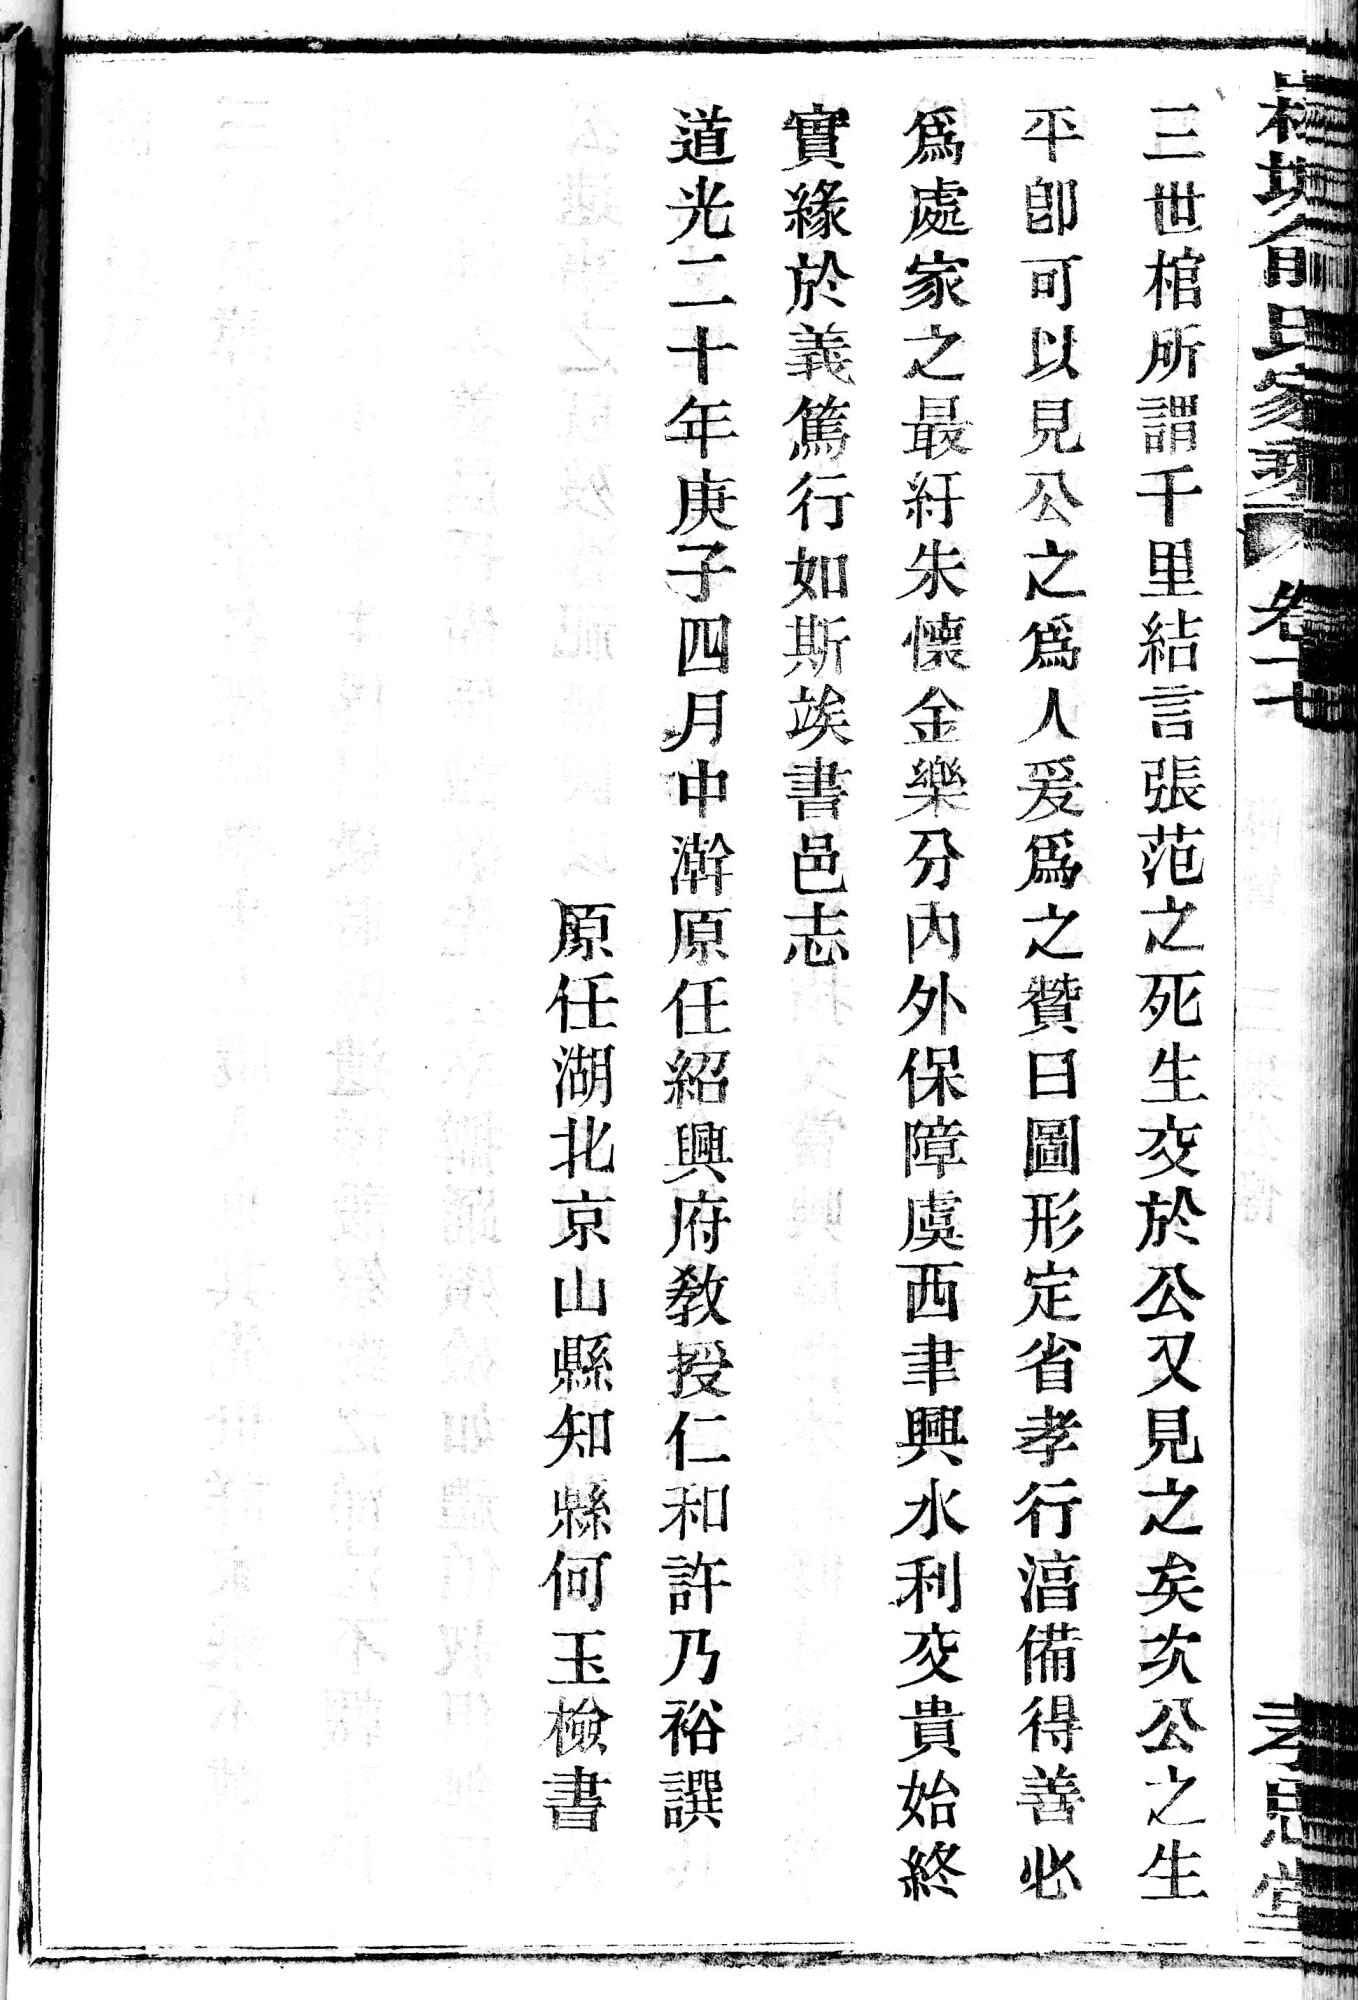 三世棺所謂千里結言張范之死生交於公又見之矣次公之生
平卽可以見公之爲人爰爲之贊曰圖形定省孝行湻備得善必
爲處家之最紆朱懷金樂分內外保障虞西聿興水利交貴始終
實緣於義篤行如斯竢書邑志
道光二十年庚子四月中澣原任紹興府敎授仁和許乃裕譔
原任湖北京山縣知縣何玉檢書
氏家 卷十七
孝思堂